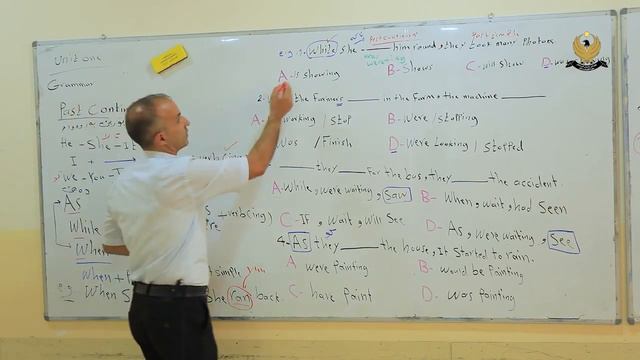 Unit one
Grammar
Past Conti
He - She - It
I +
We - You - T
As
While
When
verb(ing)
when +
simple
e.g. When S
She ran back.
run
Past continuous
Past simple
e.g. 1. While she ___ him round, they took many Photoes
A- is showing
B- Shows
C- will show
D- w
2- the farmers ___ in the farm, the machine ___
A- working / stop
B- were / stopping
was / Finish
D- were Looking / stopped
___ they ___ For the bus, they ___ the accident.
A- While, were waiting, saw
B- When, wait, had Seen
C- If, wait, will See
D- As, were waiting, See
4- As they ___ the house, It started to rain.
A were Painting
B- would be Painting
C- have paint
D- was painting